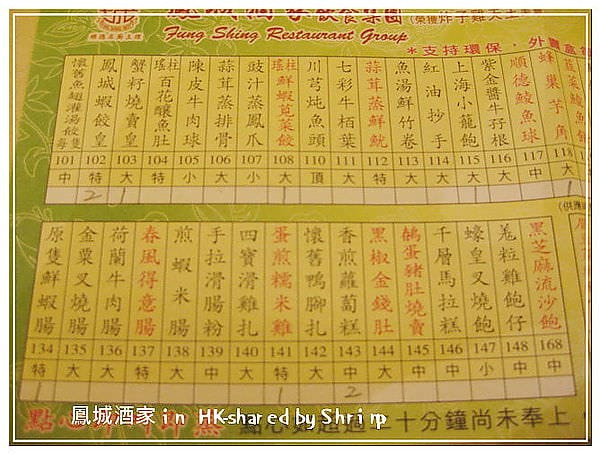 鳳城酒家飲食集團
Fung Shing Restaurant Group
*支持環保，外賣盒
懷舊魚翅灌湯餃 101 中
鳳城蝦餃皇 102 特 2
蟹籽燒賣皇 103 大 1
瑤柱百花釀魚肚 104 特
陳皮牛肉球 105 小
蒜茸蒸排骨 106 大
豉汁蒸鳳爪 107 小
瑤柱鮮蝦莧菜餃 108 特 1
川芎炖魚頭 110 頂
七彩牛栢葉 111 大
蒜茸蒸鮮魷 112 特
魚湯鮮竹卷 113 大
紅油抄手 114 大
上海小籠飽 115 大 1
紫金醬牛孖根 116 大
順德鯪魚球 117 中
蜂巢芋角 118 大 1
原隻鮮蝦腸 134 特 1
金粟叉燒腸 135 大
荷蘭牛肉腸 136 大
春風得意腸 137 特
煎蝦米腸 138 大
手拉滑腸粉 139 中
四寶滑雞扎 140 大
蛋煎糯米雞 141 特 1
懷舊鴨腳扎 142 大
香煎蘿蔔糕 143 中 2
黑椒金錢肚 144 大
鵪蛋豬肚燒賣 145 中
千層馬拉糕 146 中
蠔皇叉燒飽 147 小
羗粒雞飽仔 148 中
黑芝麻流沙飽 168 中
點心
二十分鐘尚未奉上
鳳城酒家 in HK-shared by Shrimp